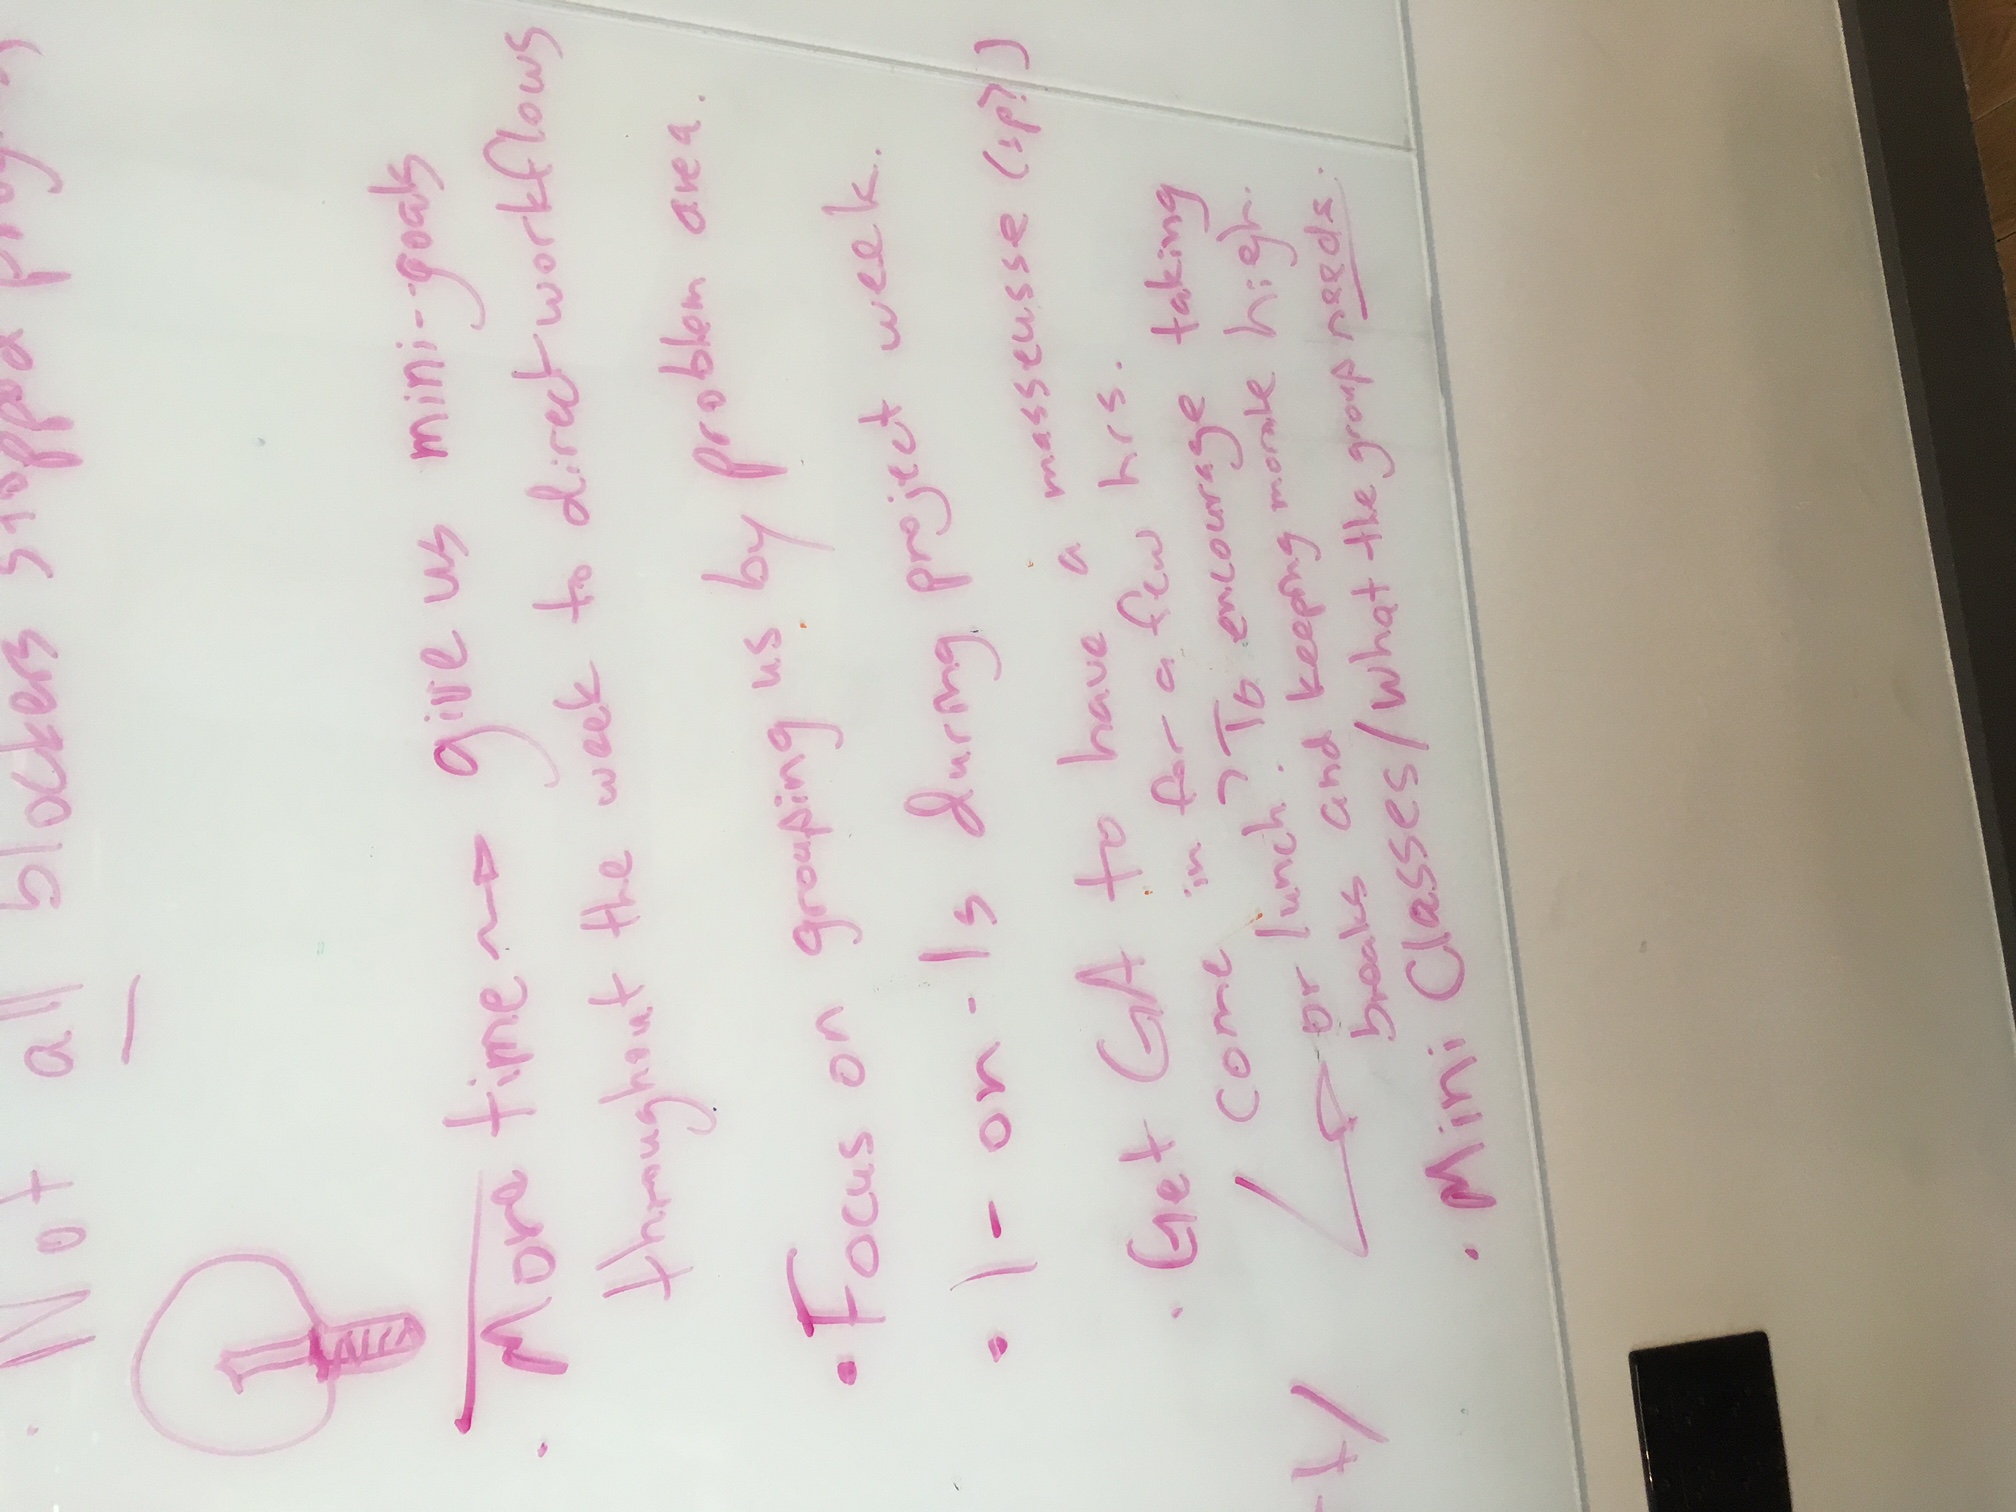 · Not all blockers stopped
· More time → give us mini-goals
throughout the week to direct workflows
• Focus on grouping us by problem area.
• 1-on-1s during project week.
· Get GA to have a masseusse (sp?)
come in for a few hrs.
→ or lunch? To encourage taking
breaks and keeping morale high.
· Mini Classes/What the group needs.